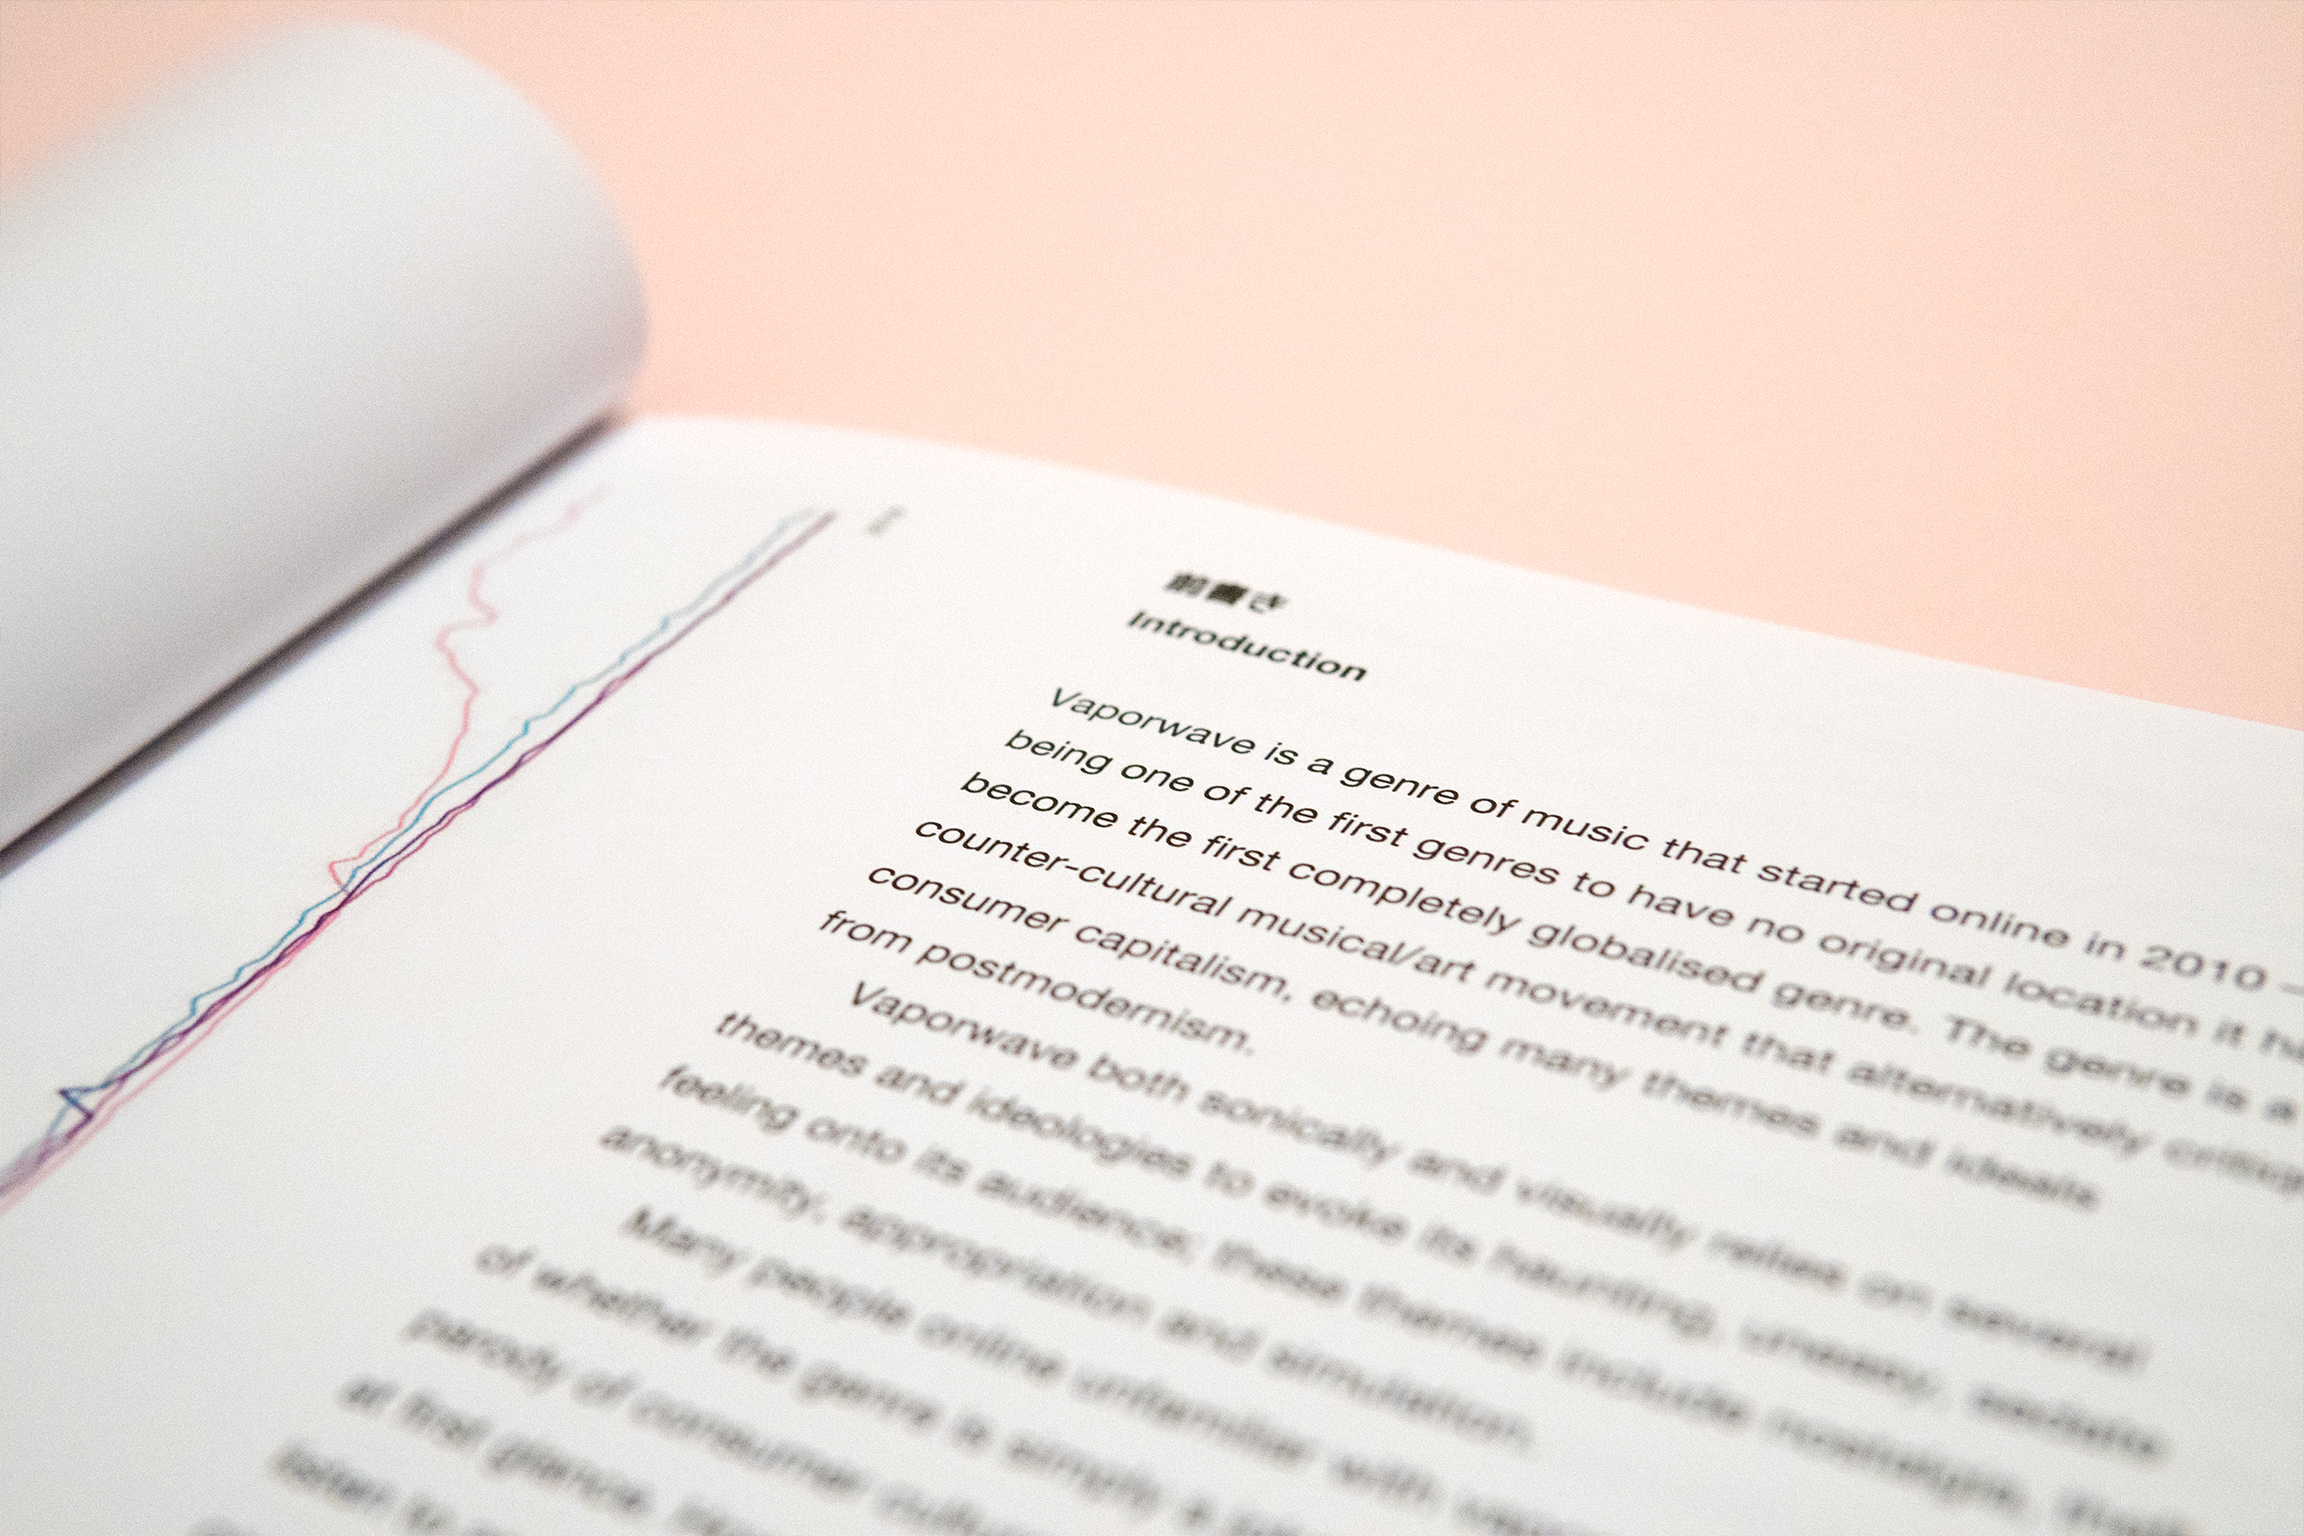 前書き
Introduction
Vaporwave is a genre of music that started online in 2010 –
being one of the first genres to have no original location it
become the first completely globalised genre. The genre is a
counter-cultural musical/art movement that alternatively
consumer capitalism, echoing many themes and ideals
from postmodernism.
Vaporwave both sonically and visually relies on several
themes and ideologies to evoke its haunting, uneasy,
feeling onto its audience; these themes include nostalgia,
anonymity, appropriation and simulation.
Many people online unfamiliar with
of whether the genre is simply a
parody of consumer
at first glance.
listen to